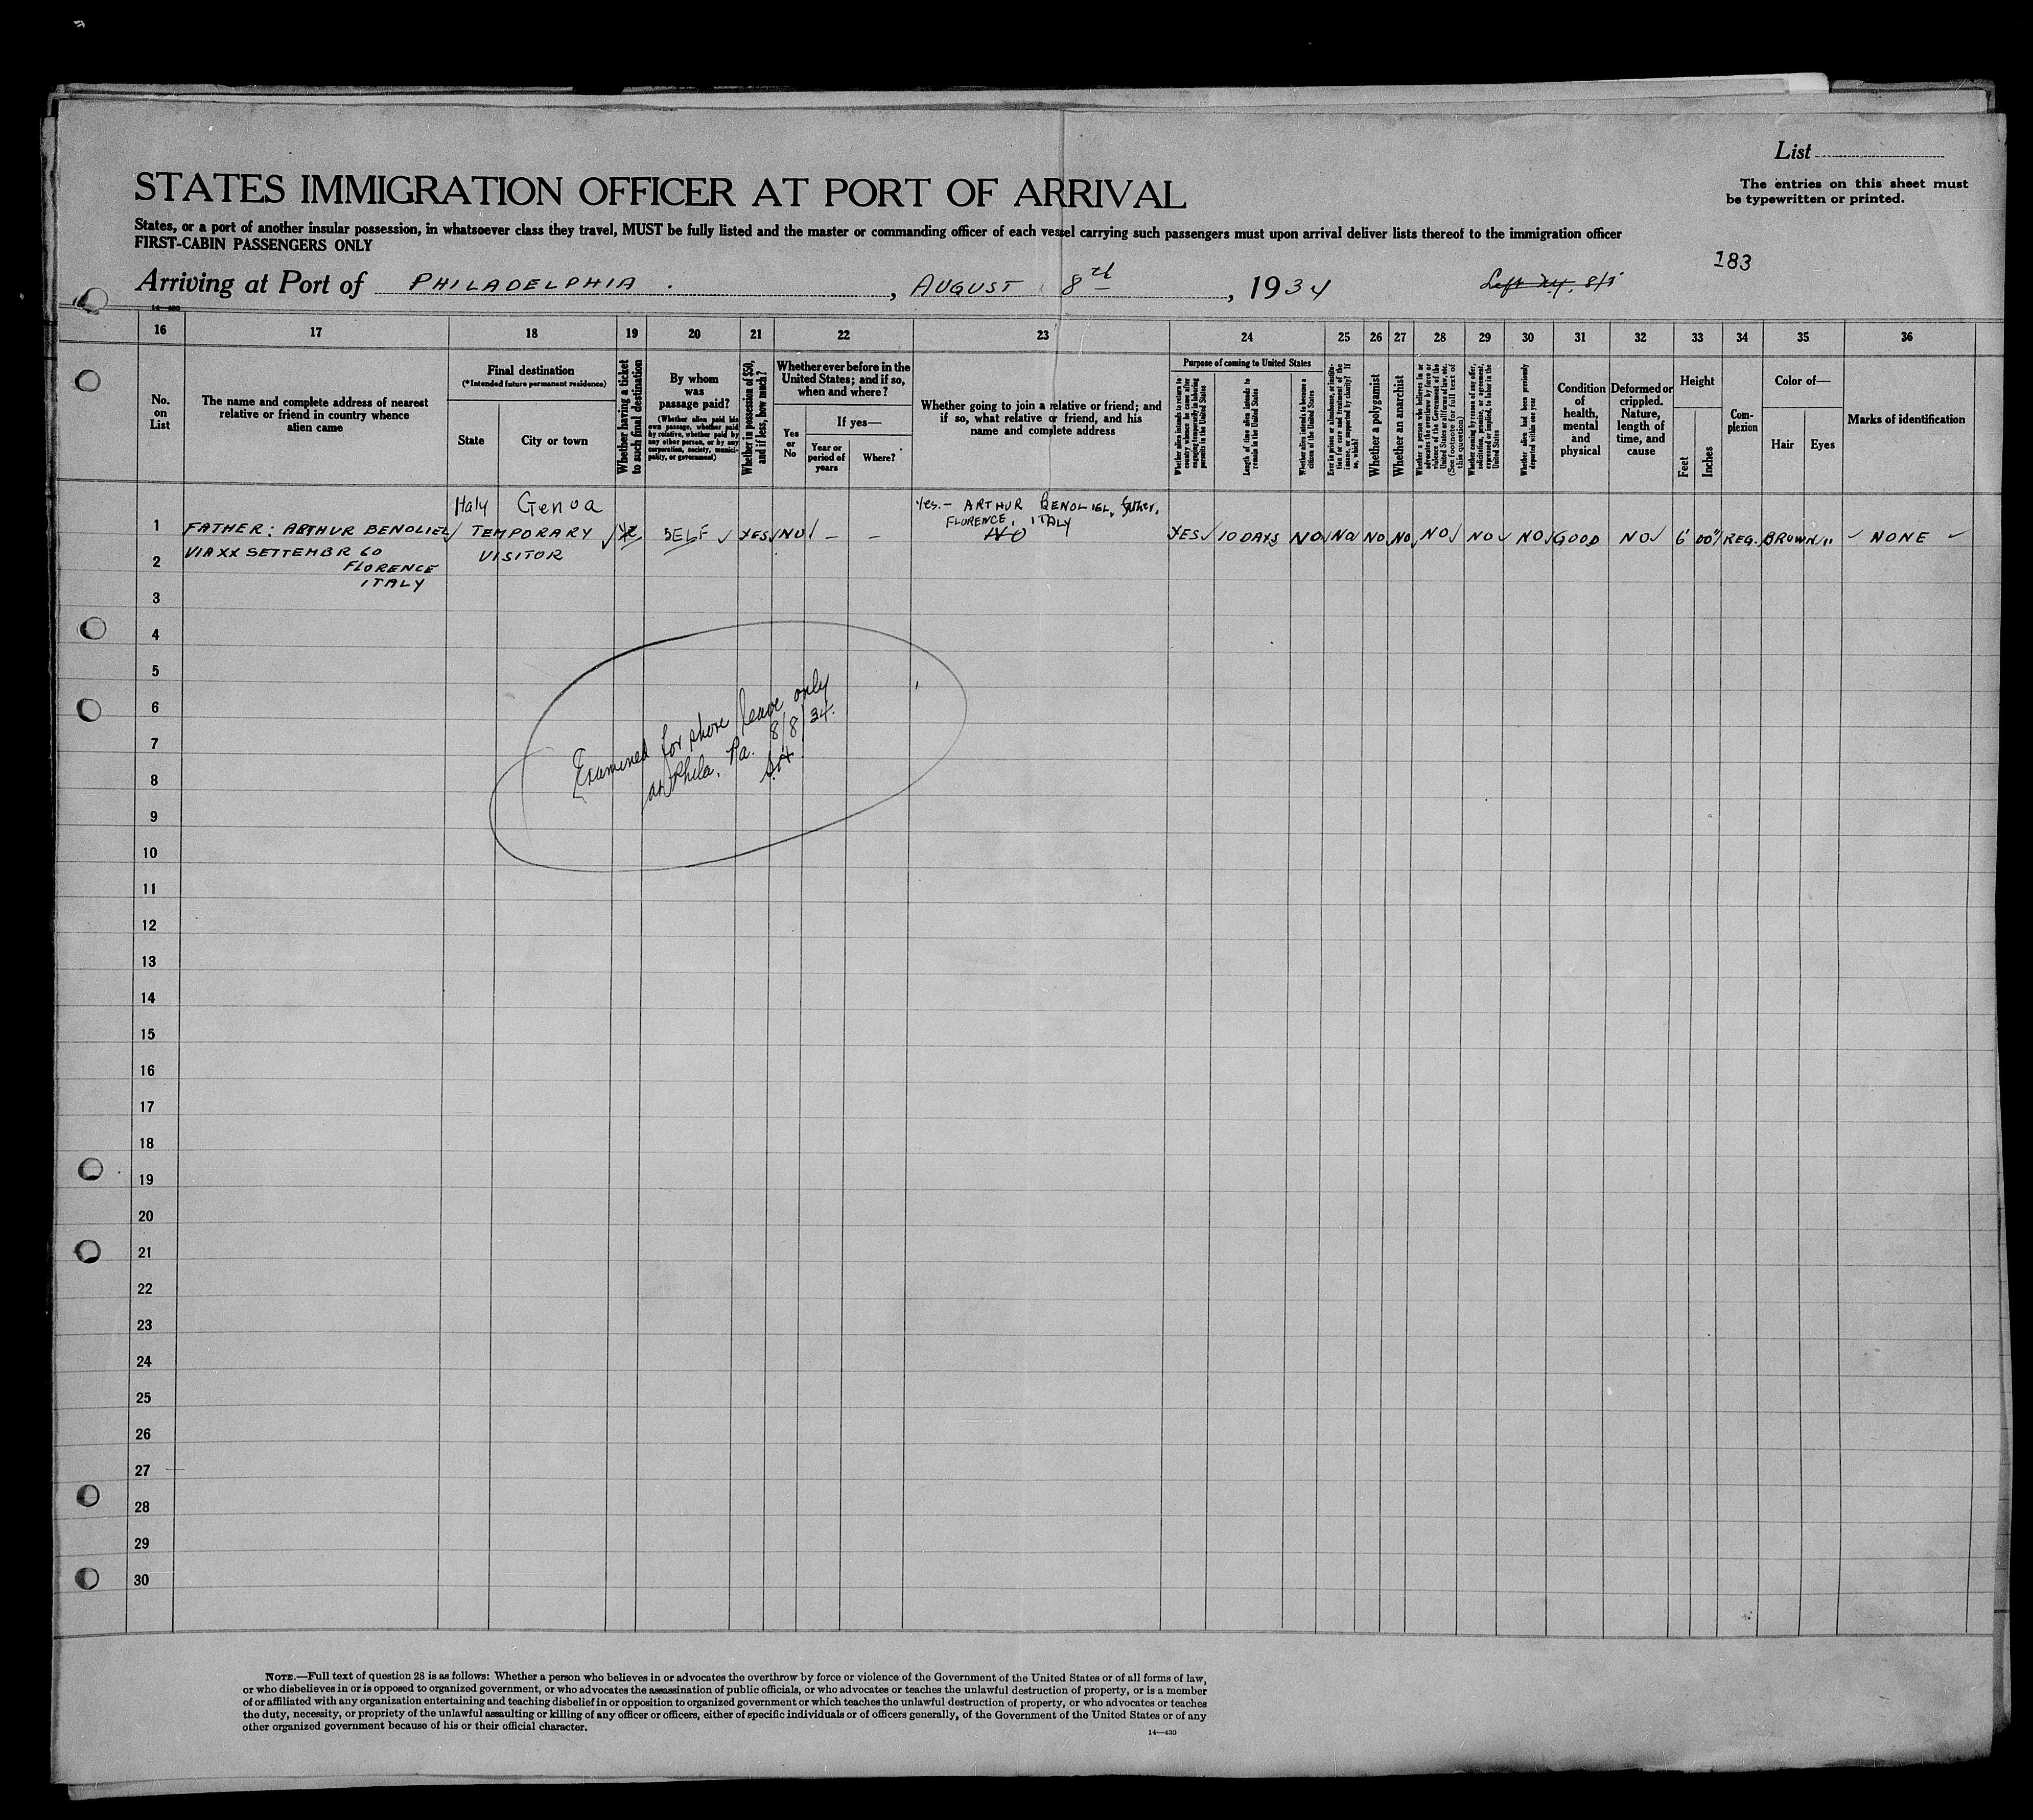 List
STATES IMMIGRATION OFFICER AT PORT OF ARRIVAL
The entries on this sheet must
be typewritten or printed.
States, or a port of another insular possession, in whatsoever class they travel, MUST be fully listed and the master or commanding officer of each vessel carrying such passengers must upon arrival deliver lists thereof to the immigration officer
FIRST-CABIN PASSENGERS ONLY
183
Arriving at Port of PHILADELPHIA. , AUGUST 8th , 1934
14—430
16 17 18 19 20 21 22 23 24 25 26 27 28 29 30 31 32 33 34 35 36
No.
on
List
The name and complete address of nearest
relative or friend in country whence
alien came
Final destination
(*Intended future permanent residence)
State
City or town
Whether having a ticket
to such final destination
By whom
was
passage paid?
(Whether alien paid his
own passage, whether paid
by relative, whether paid by
any other person, or by any
corporation, society, munici-
pality, or government)
Whether in possession of $50,
and if less, how much?
Whether ever before in the
United States; and if so,
when and where?
Yes
or
No
If yes—
Year or
period of
years
Where?
Whether going to join a relative or friend; and
if so, what relative or friend, and his
name and complete address
Purpose of coming to United States
Whether alien intends to return to
country whence he came after
engaging temporarily in laboring
pursuits in the United States
Length of time alien intends to
remain in the United States
Whether alien intends to become a
citizen of the United States
Ever in prison or almshouse, or institu-
tion for care and treatment of the
insane, or supported by charity? If
so, which?
Whether a polygamist
Whether an anarchist
Whether a person who believes in or
advocates the overthrow by force or
violence of the Government of the
United States or all forms of law, etc.
(See footnote for full text of
this question)
Whether coming by reason of any offer,
solicitation, promise, or agreement,
expressed or implied, to labor in the
United States
Whether alien had been previously
deported within one year
Condition
of
health,
mental
and
physical
Deformed or
crippled.
Nature,
length of
time, and
cause
Height
Feet
Inches
Com-
plexion
Color of—
Hair
Eyes
Marks of identification
Italy Genoa Yes.- ARTHUR BENOLIEL, father,
FLORENCE, ITALY
1 FATHER: ARTHUR BENOLIEL TEMPORARY SELF YES NO — — NO YES 10 DAYS NO NO NO NO NO NO NO GOOD NO 6' 00" REG. BROWN " NONE
VIA XX SETTEMBR 60 VISITOR
2 FLORENCE
ITALY
3
4
5
6
7
8
9
Examined for shore leave only
at Phila. Pa. 8/8/34.
10
11
12
13
14
15
16
17
18
19
20
21
22
23
24
25
26
27
28
29
30
NOTE.—Full text of question 28 is as follows: Whether a person who believes in or advocates the overthrow by force or violence of the Government of the United States or of all forms of law,
or who disbelieves in or is opposed to organized government, or who advocates the assassination of public officials, or who advocates or teaches the unlawful destruction of property, or is a member
of or affiliated with any organization entertaining and teaching disbelief in or opposition to organized government or which teaches the unlawful destruction of property, or who advocates or teaches
the duty, necessity, or propriety of the unlawful assaulting or killing of any officer or officers, either of specific individuals or of officers generally, of the Government of the United States or of any
other organized government because of his or their official character.
14—430